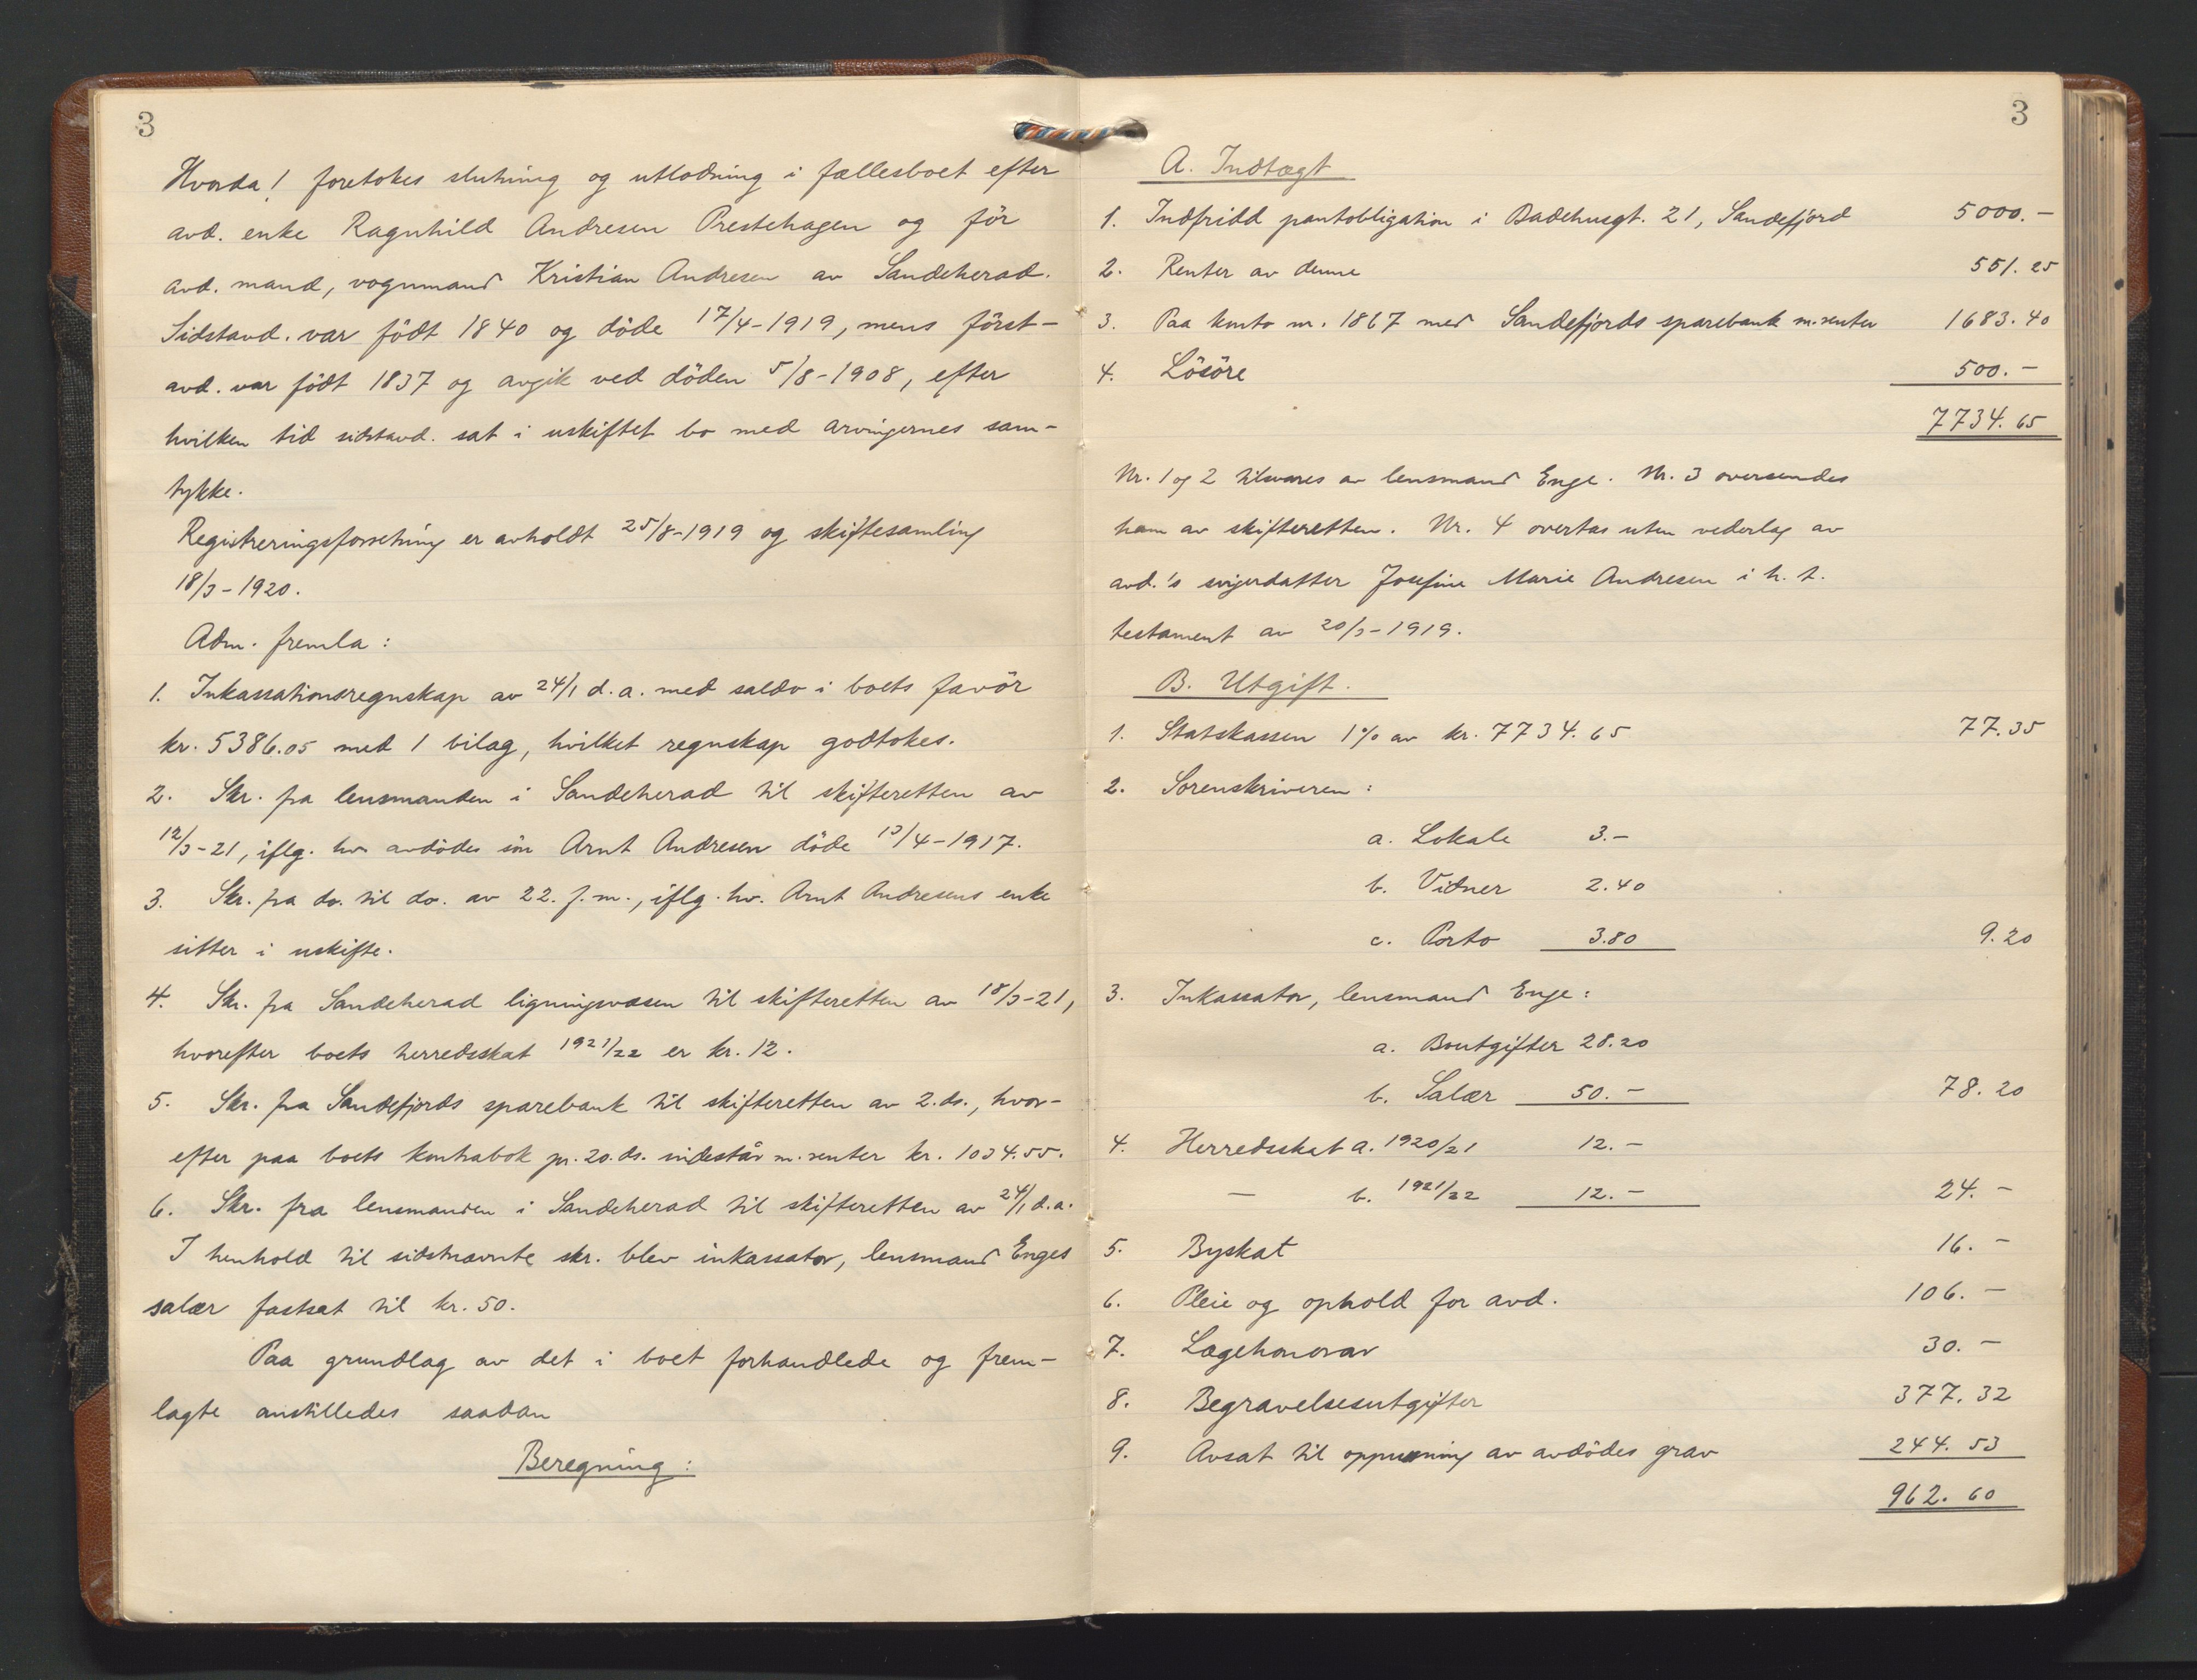 3
Hvorda! foretokes slutning og utlodning i fællesboet efter
avd. enke Ragnhild Andresen Prestehagen og før
avd. mand, vognmand Kristian Andresen av Sandeherad.
Sidstavd. var født 1840 og døde 17/4-1919, mens først-
avd. var født 1837 og avgik ved døden 5/8-1908, efter
hvilken tid sidstavd. sat i uskiftet bo med arvingernes sam-
tykke.
Registreringsforretning er avholdt 25/8-1919 og skiftesamling
18/3-1920.
Adm. fremla:
1. Inkassationsregnskap av 24/1 d.a. med saldo i boets favør
kr. 5386.05 med 1 bilag, hvilket regnskap godtokes.
2. Skr. fra lensmanden i Sandeherad til skifteretten av
12/3-21, iflg. hv. avdødes søn Arnt Andresen døde 13/4-1917.
3. Skr. fra do. til do. av 22. f.m., iflg. hv. Arnt Andresens enke
sitter i uskifte.
4. Skr. fra Sandeherad ligningsvæsen til skifteretten av 18/3-21,
hvorefter boets herredsskat 1921/22 er kr. 12.
5. Skr. fra Sandefjords sparebank til skifteretten av 2. ds., hvor-
efter paa boets kontrabok pr. 20. ds. indestår m. renter kr. 1034.55.
6. Skr. fra lensmanden i Sandeherad til skifteretten av 24/1 d.a.
I henhold til sidstnævnte skr. blev inkassator, lensmand Enges
salær fastsat til kr. 50.
Paa grundlag av det i boet forhandlede og frem-
lagte anstilledes saadan
Beregning:
3
A. Indtægt
1. Indfridd pantobligation i Badehusgt. 21, Sandefjord 5000.-
2. Renter av denne 551.25
3. Paa konto nr. 1867 med Sandefjords sparebank m. renter 1683.40
4. Løsøre 500.-
7734.65
Nr. 1 og 2 tilsvares av lensmand Enge. Nr. 3 oversendes
ham av skifteretten. Nr. 4 overtas uten vederlag av
avd.'s svigerdatter Josefine Marie Andresen i h. t.
testament av 20/3-1919.
B. Utgift.
1. Statskassen 1% av kr. 7734.65 77.35
2. Sorenskriveren:
a. Lokale 3.-
b. Vidner 2.40
c. Porto 3.80 9.20
3. Inkassator, lensmand Enge:
a. Boutgifter 28.20
b. Salær 50.- 78.20
4. Herredsskat a. 1920/21 12.-
- b. 1921/22 12.- 24.-
5. Byskat 16.-
6. Pleie og ophold for avd. 106.-
7. Lægehonorar 30.-
8. Begravelsesutgifter 377.32
9. Avsat til oppusning av avdødes grav 244.53
962.60